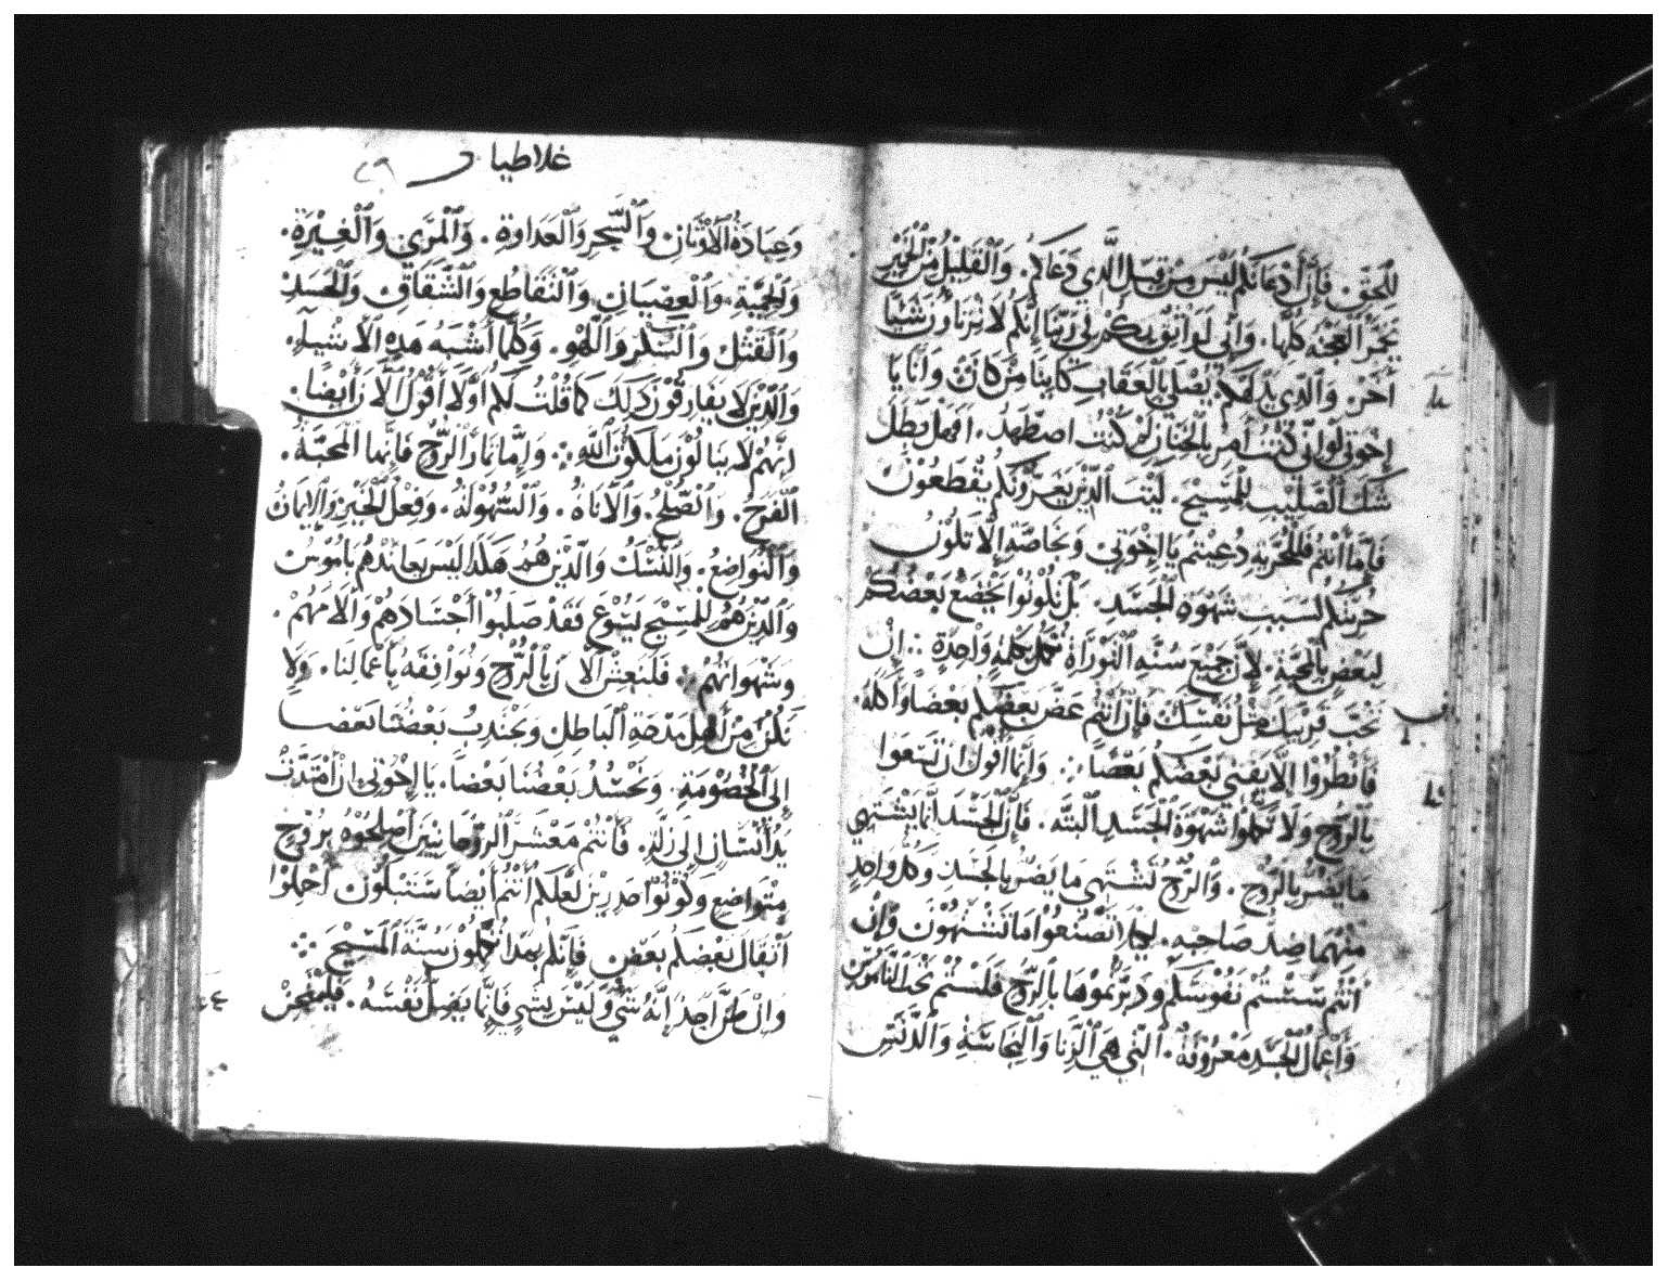 للحق. فان ادعانكم ليس من قبل الذي دعاكم. والقليل من الخمير
يخمر العجنه كلها. واني لواثق بكم في ربنا انكم لا ترتاون شيا
اخر. والذي يدلهكم يصلي بالعقاب كاينا من كان وانا يا
اخوتي لو اني كنت امر بالختان لم كنت اضطهد. افهل بطل
شك الصليب للمسيح. ليت الذين يعيرونكم يقطعون
فاما انتم فللحريه دعيتم يا اخوتي وبخاصة الا تكون
حريتكم لسبب شهوة الجسد. بل تكونوا يخضع بعضكم
لبعض بالمحبة. لان جميع سنه التوراة تكمل بكلمة واحدة ∴ ان
تحب قريبك مثل نفسك فان انتم عض بعضكم بعضا واكله.
فانظروا الا يفني بعضكم بعضا ∴ وانما اقول ان تسعوا
بالروح ولا تكملوا شهوة الجسد البته. فان الجسد انما يشتهي
ما يضر بالروح. والروح تشتهي ما يضر بالجسد وكل واحد
منهما ضد صاحبه. لكيلا تصنعوا ما تشتهون وان
انتم سستم نفوسكم ودبرتموها بالروح فلستم تحت الناموس
واعمال الجسد معروفة. التي هي الزنا والنجاسة والدنس
غلاطيا
وعبادة الاوثان والسحر والعداوة. والمري والغيرة.
والحمية. والعصيان والتقاطع والشقاق والحسد
والقتل والسكر واللهو. وكلما اشبه هذه الاشياء.
والذين لا يفارقون ذلك كما قلت لكم اولا اقول الان ايضا.
انهم لا ينالون ملكوت الله ∴ واما ثمار الروح فانها المحبة.
الفرح. والصلح. والاناة. والسهولة. وفعل الخير والايمان
والتواضع. والنسك والذين هم هكذا ليس يعاندهم ناموس
والذين هم للمسيح يسوع فقد صلبوا اجسادهم والامهم.
وشهواتهم ∴ فلنعش الان بالروح ونوافقه باعمالنا. ولا
نكن من اهل مدحة الباطل ويجذب بعضنا بعضا
الى الخصومة. ونحسد بعضنا بعضا. يا اخوتي ان امتدت
يد انسان الى زلة. فانتم معشر الروحانيين اصلحوه بروح
متواضع وكونوا حذرين لعلكم انتم ايضا ستبتلون احملوا
اثقال بعضكم بعض فانكم بهذا تكملون سنة المسيح ∴
وان ظن احد انه شي وليس بشي فانما يضل نفسه. فليمتحن